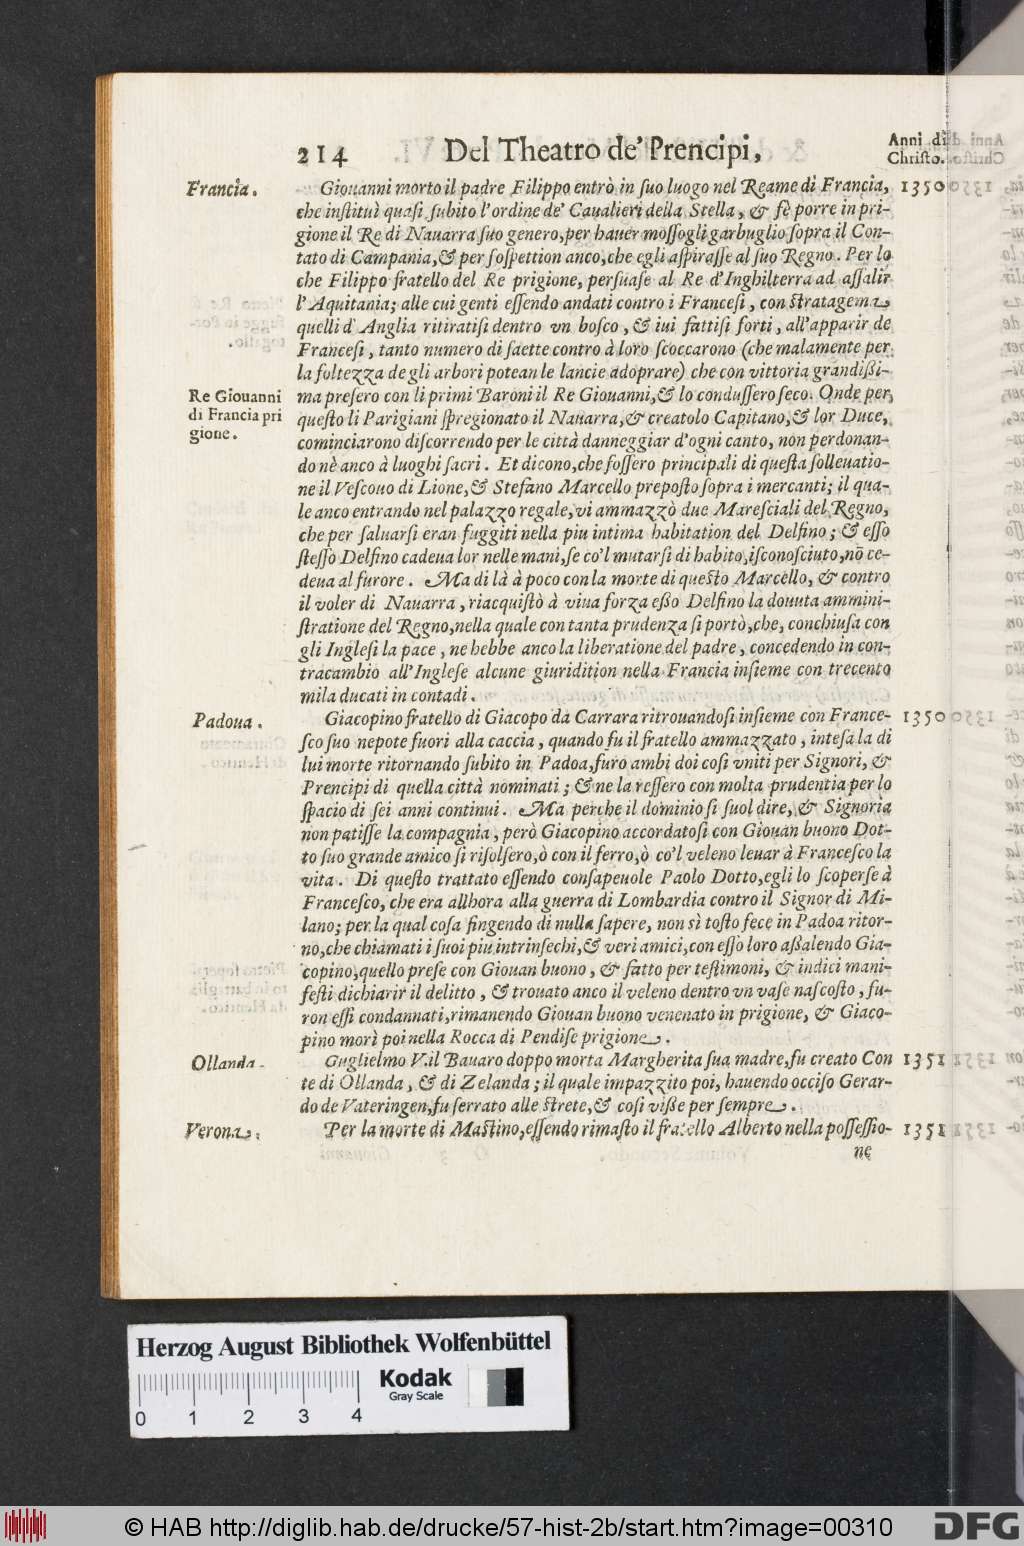 214 Del Theatro de' Prencipi, Anni di Christo.
Francia. Giouanni morto il padre Filippo entrò in ſuo luogo nel Reame di Francia, 1350
che inſtituì quaſi ſubito l'ordine de' Caualieri della Stella, & fè porre in pri-
gione il Re di Nauarra ſuo genero, per hauer moſſogli garbuglio ſopra il Con-
tato di Campania, & per ſoſpettion anco, che egli aſpiraſſe al ſuo Regno. Per lo
che Filippo fratello del Re prigione, perſuaſe al Re d'Inghilterra ad aſſalir
l'Aquitania; alle cui genti eſſendo andati contro i Franceſi, con ſtratagema
quelli d'Anglia ritiratiſi dentro vn boſco, & iui fattiſi forti, all'apparir de
Franceſi, tanto numero di ſaette contro à loro ſcoccarono (che malamente per
la foltezza de gli arbori potean le lancie adoprare) che con vittoria grandißi-
Re Giouanni ma preſero con li primi Baroni il Re Giouanni, & lo conduſſero ſeco. Onde per
di Francia pri queſto li Parigiani ſpregionato il Nauarra, & creatolo Capitano, & lor Duce,
gione. cominciarono diſcorrendo per le città danneggiar d'ogni canto, non perdonan-
do nè anco à luoghi ſacri. Et dicono, che foſſero principali di queſta ſolleuatio-
ne il Veſcouo di Lione, & Stefano Marcello prepoſto ſopra i mercanti; il qua-
le anco entrando nel palazzo regale, vi ammazzò due Mareſciali del Regno,
che per ſaluarſi eran fuggiti nella piu intima habitation del Delfino; & eſſo
ſteſſo Delfino cadeua lor nelle mani, ſe co'l mutarſi di habito, iſconoſciuto, nõ ce-
deua al furore. Ma di là à poco con la morte di queſto Marcello, & contro
il voler di Nauarra, riacquiſtò à viua forza eßo Delfino la douuta ammini-
ſtratione del Regno, nella quale con tanta prudenza ſi portò, che, conchiuſa con
gli Ingleſi la pace, ne hebbe anco la liberatione del padre, concedendo in con-
tracambio all'Ingleſe alcune giuridition nella Francia inſieme con trecento
mila ducati in contadi.
Padoua. Giacopino fratello di Giacopo da Carrara ritrouandoſi inſieme con France- 1350
ſco ſuo nepote fuori alla caccia, quando fu il fratello ammazzato, inteſa la di
lui morte ritornando ſubito in Padoa, furo ambi doi coſi vniti per Signori, &
Prencipi di quella città nominati; & ne la reſſero con molta prudentia per lo
ſpacio di ſei anni continui. Ma perche il dominio ſi ſuol dire, & Signoria
non patiſſe la compagnia, però Giacopino accordatoſi con Giouan buono Dot-
to ſuo grande amico ſi riſolſero, ò con il ferro, ò co'l veleno leuar à Franceſco la
vita. Di queſto trattato eſſendo conſapeuole Paolo Dotto, egli lo ſcoperſe à
Franceſco, che era allhora alla guerra di Lombardia contro il Signor di Mi-
lano; per la qual coſa fingendo di nulla ſapere, non sì toſto fece in Padoa ritor-
no, che chiamati i ſuoi piu intrinſechi, & veri amici, con eſſo loro aßalendo Gia-
copino, quello preſe con Giouan buono, & fatto per teſtimoni, & indici mani-
feſti dichiarir il delitto, & trouato anco il veleno dentro vn vaſe naſcoſto, fu-
ron eſſi condannati, rimanendo Giouan buono venenato in prigione, & Giaco-
pino morì poi nella Rocca di Pendiſe prigione.
Ollanda. Guglielmo V. il Bauaro doppo morta Margherita ſua madre, fu creato Con 1351
te di Ollanda, & di Zelanda; il quale impazzito poi, hauendo occiſo Gerar-
do de Vateringen, fu ſerrato alle ſtrete, & coſi viße per ſempre.
Verona. Per la morte di Maſtino, eſſendo rimaſto il fratello Alberto nella poſſeſſio- 1351
ne
Herzog August Bibliothek Wolfenbüttel
Kodak
Gray Scale
0 1 2 3 4
© HAB http://diglib.hab.de/drucke/57-hist-2b/start.htm?image=00310
DFG